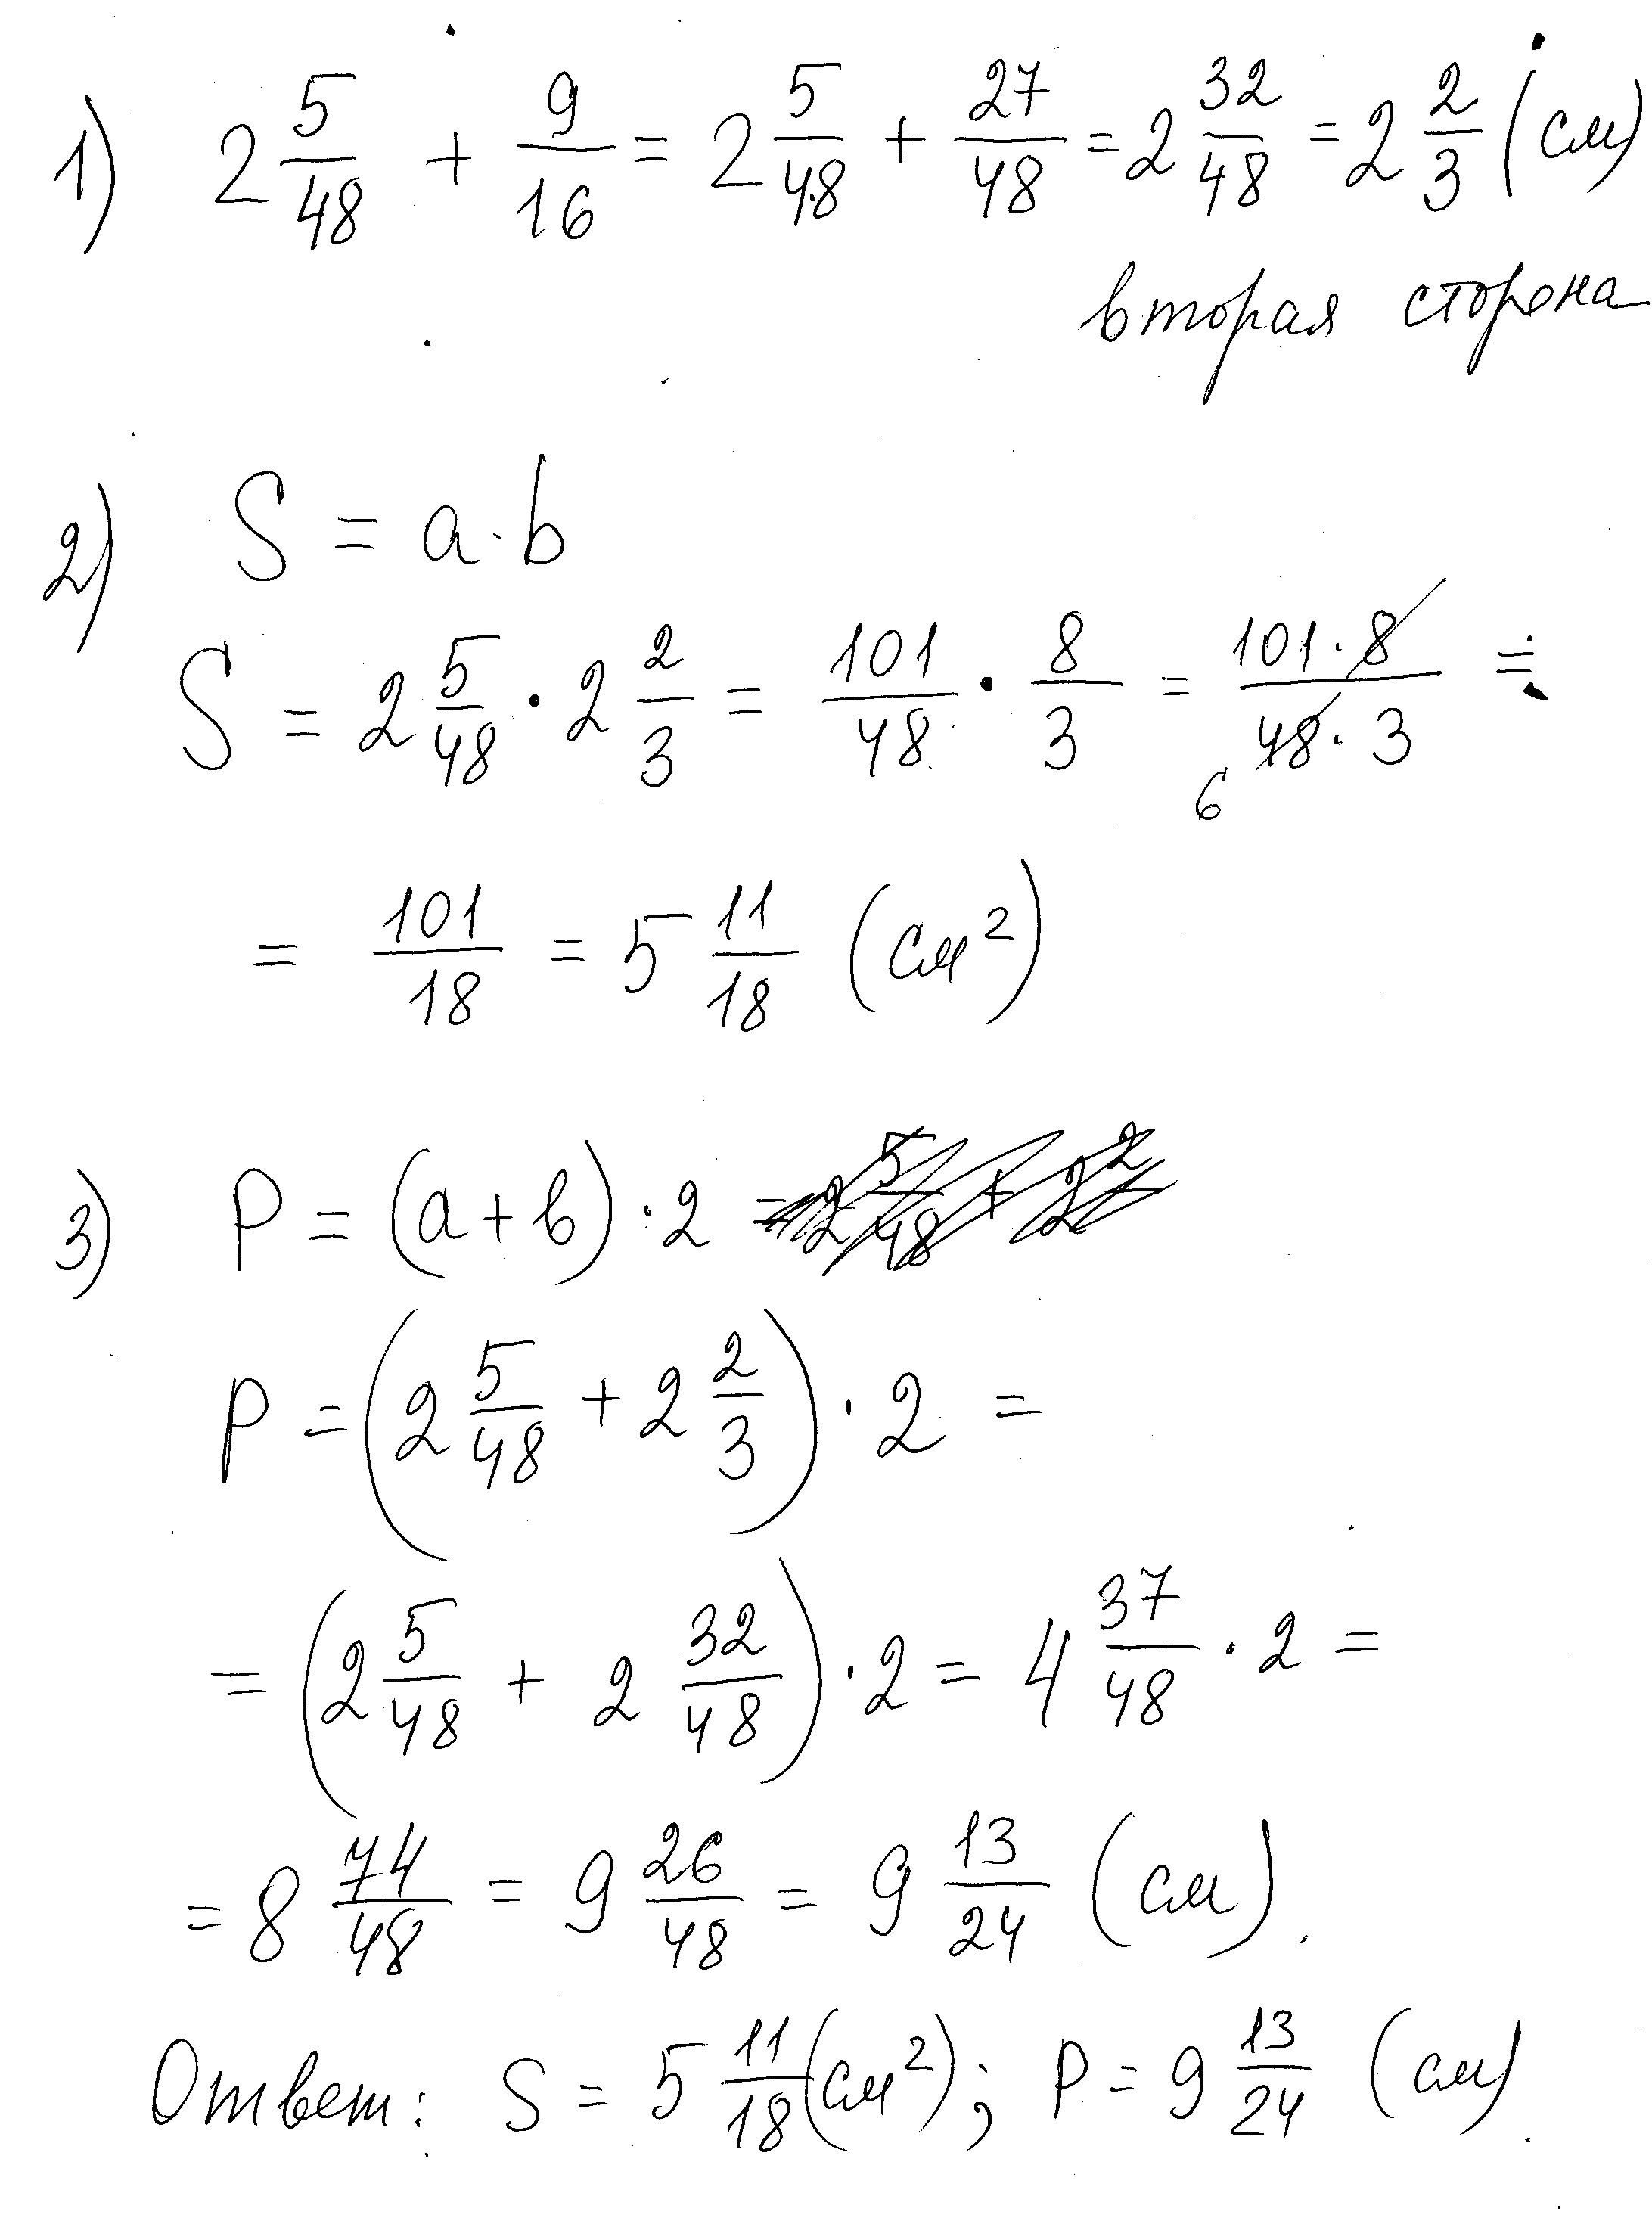 1) 2 5/48 + 9/16 = 2 5/48 + 27/48 = 2 32/48 = 2 2/3 (см)
вторая сторона
2) S = a·b
S = 2 5/48 · 2 2/3 = 101/48 · 8/3 = 101·8/48·3 =
6
= 101/18 = 5 11/18 (см²)
3) P = (a+b)·2 = 2 5/48 + 2 2
P = (2 5/48 + 2 2/3) · 2 =
= (2 5/48 + 2 32/48) · 2 = 4 37/48 · 2 =
= 8 74/48 = 9 26/48 = 9 13/24 (см).
Ответ: S = 5 11/18 (см²); P = 9 13/24 (см).